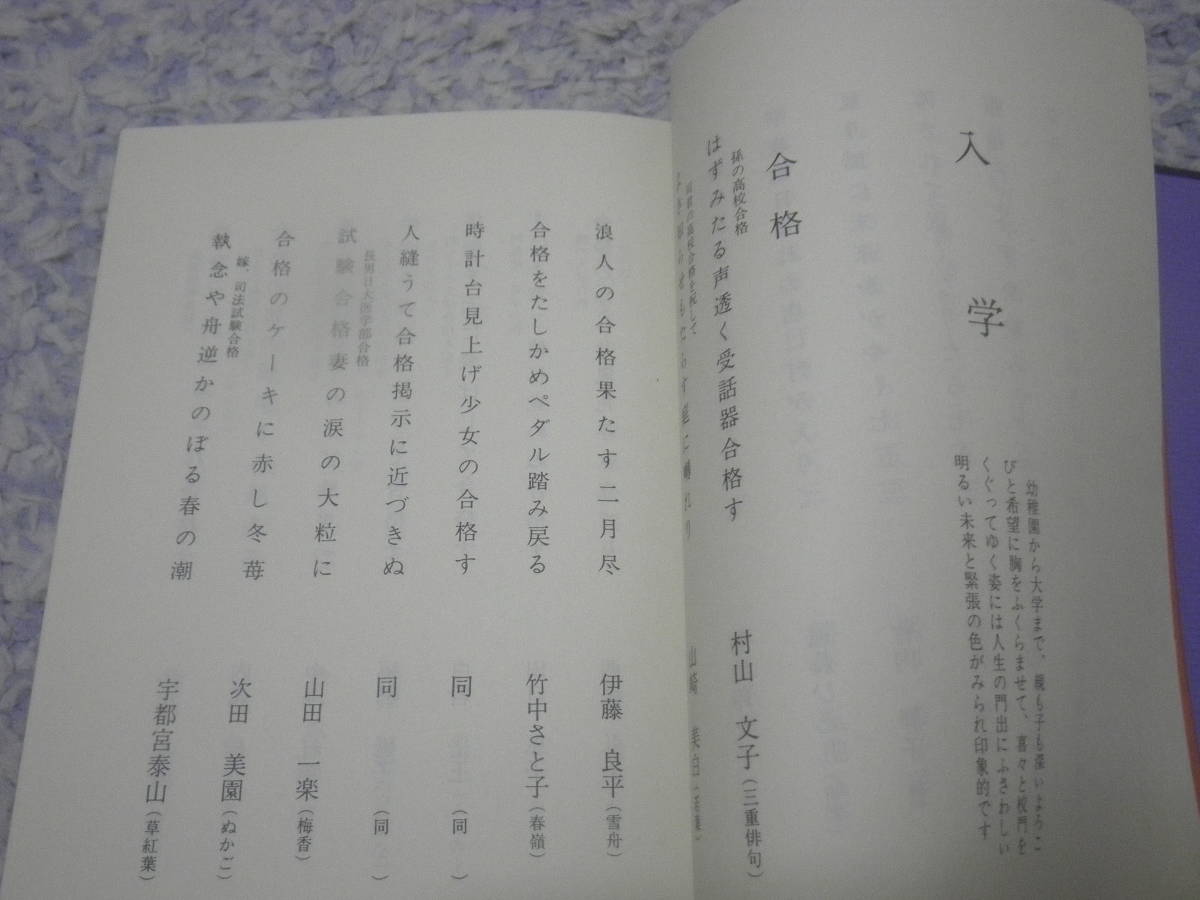 入学
幼稚園から大学まで、親も子も深いよろこ
びと希望に胸をふくらませて、喜々と校門を
くぐってゆく姿には人生の門出にふさわしい
明るい未来と緊張の色がみられ印象的です
合格
孫の高校合格
はずみたる声透く受話器合格す
村山 文子(三重俳句)
山崎 美白
浪人の合格果たす二月尽
伊藤 良平(雪舟)
合格をたしかめペダル踏み戻る
竹中さと子(春嶺)
時計台見上げ少女の合格す
同 (同)
人縫うて合格掲示に近づきぬ
同 (同)
長男日大医学部合格
試験合格妻の涙の大粒に
山田 一楽(梅香)
合格のケーキに赤し冬苺
次田 美園(ぬかご)
嫁、司法試験合格
執念や舟逆かのぼる春の潮
宇都宮泰山(草紅葉)